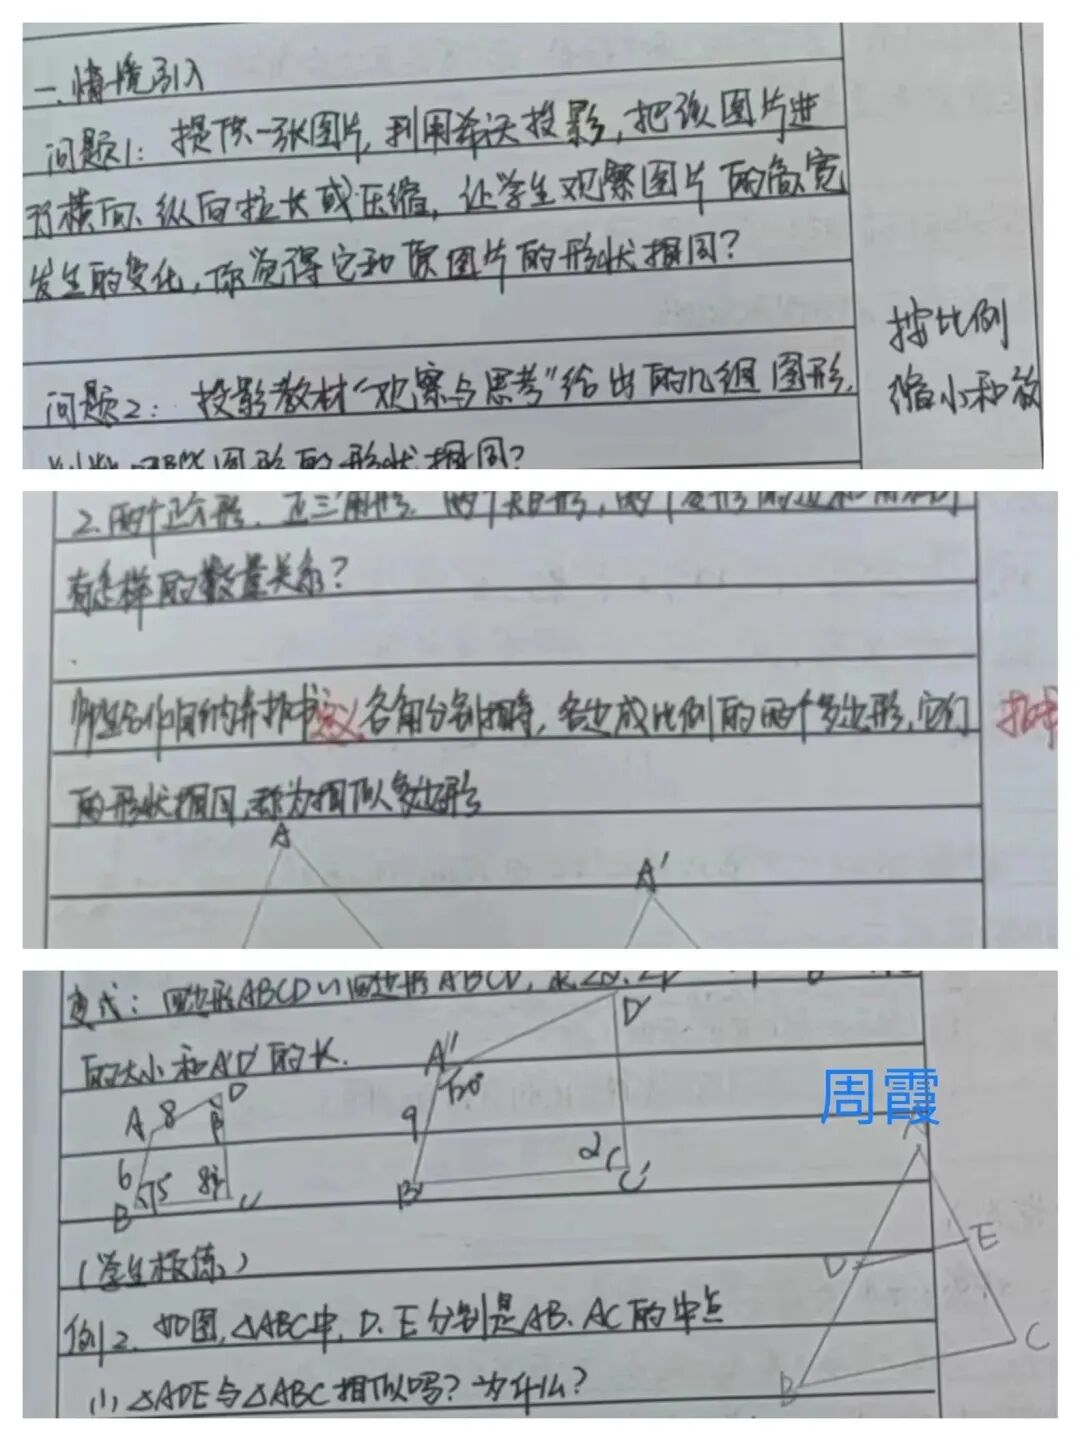 一.情境引入
问题1：提供一张图片,利用希沃投影,把该图片进
行横向、纵向拉长或压缩,让学生观察图片的高宽
发生的变化,你觉得它和原图片的形状相同?
按比例
问题2：投影教材“观察与思考”给出的几组图形,
缩小和放
图形的形状相同?
2.两个正方形、正三角形、两个矩形,两个
有怎样的数量关系?
师生合作归纳并板书定义各角分别相等,各边成比例的两个多边形,它们
板书
的形状相同,称为相似多边形
A
A′
变式：四边形ABCD∽四边形A′B′C′D′,求∠α、∠β
的大小和A′D′的长.
A 8 D β
6
B 75° C
A′ 120° D′
9
B′ α C′
周霞
A
D E
B C
(学生板练)
例2.如图,△ABC中,D、E分别是AB、AC的中点
(1)△ADE与△ABC相似吗?为什么?